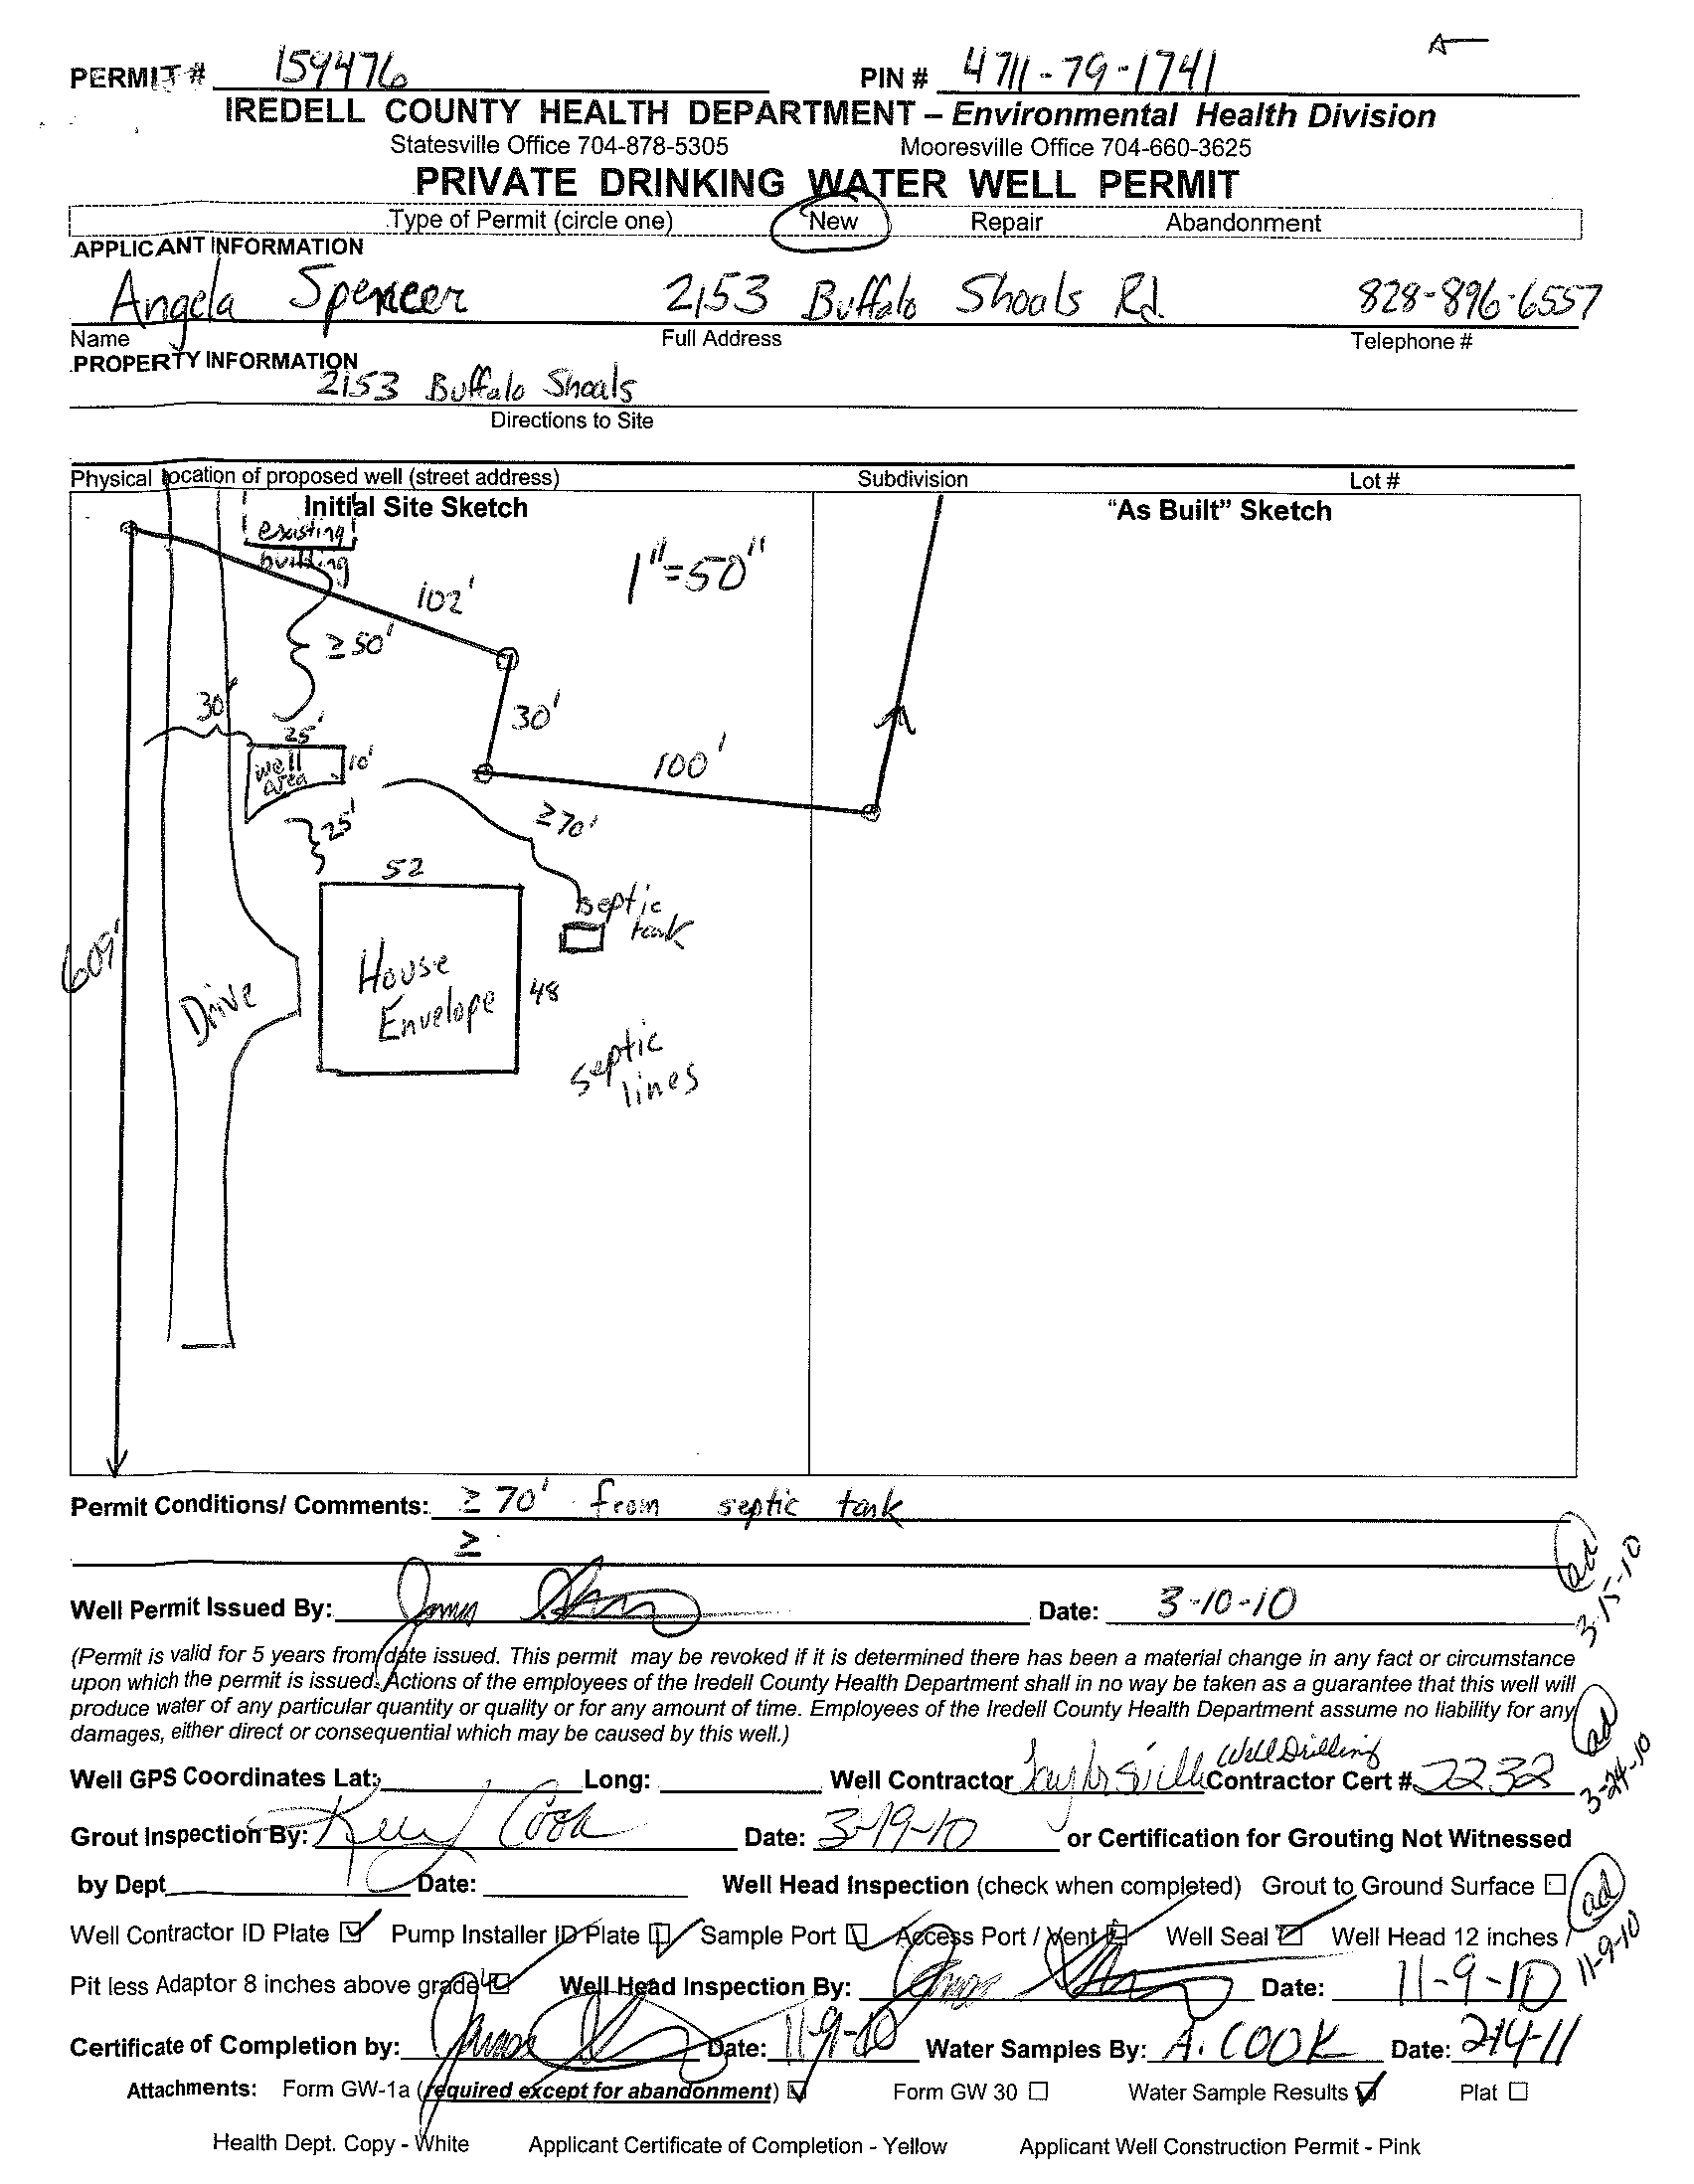 A
PERMIT # 159476 PIN # 4711-79-1741
IREDELL COUNTY HEALTH DEPARTMENT – Environmental Health Division
Statesville Office 704-878-5305 Mooresville Office 704-660-3625
PRIVATE DRINKING WATER WELL PERMIT
Type of Permit (circle one) New Repair Abandonment
APPLICANT INFORMATION
Angela Spencer 2153 Buffalo Shoals Rd. 828-896-6557
Name Full Address Telephone #
PROPERTY INFORMATION
2153 Buffalo Shoals
Directions to Site
Physical location of proposed well (street address) Subdivision Lot #
Initial Site Sketch "As Built" Sketch
existing
building
1"=50"
102'
≥50'
30'
30'
25'
well
area
10'
100'
≥70'
25'
52
septic
tank
609'
House
Envelope
48
Drive
septic
lines
Permit Conditions/ Comments: ≥ 70' from septic tank
≥
ad
3-15-10
Well Permit Issued By: James Date: 3-10-10
(Permit is valid for 5 years from date issued. This permit may be revoked if it is determined there has been a material change in any fact or circumstance
upon which the permit is issued. Actions of the employees of the Iredell County Health Department shall in no way be taken as a guarantee that this well will
produce water of any particular quantity or quality or for any amount of time. Employees of the Iredell County Health Department assume no liability for any
damages, either direct or consequential which may be caused by this well.)
ad
3-24-10
Well GPS Coordinates Lat: Long: Well Contractor Taylorsville Well Drilling Contractor Cert # 2232
Grout Inspection By: Kelly Cook Date: 3-19-10 or Certification for Grouting Not Witnessed
by Dept Date: Well Head Inspection (check when completed) Grout to Ground Surface
ad
11-9-10
Well Contractor ID Plate Pump Installer ID Plate Sample Port Access Port / Vent Well Seal Well Head 12 inches /
Pit less Adaptor 8 inches above grade Well Head Inspection By: James Date: 11-9-10
Certificate of Completion by: James Date: 11-9-10 Water Samples By: A. COOK Date: 2-14-11
Attachments: Form GW-1a (required except for abandonment) Form GW 30 Water Sample Results Plat
Health Dept. Copy - White Applicant Certificate of Completion - Yellow Applicant Well Construction Permit - Pink